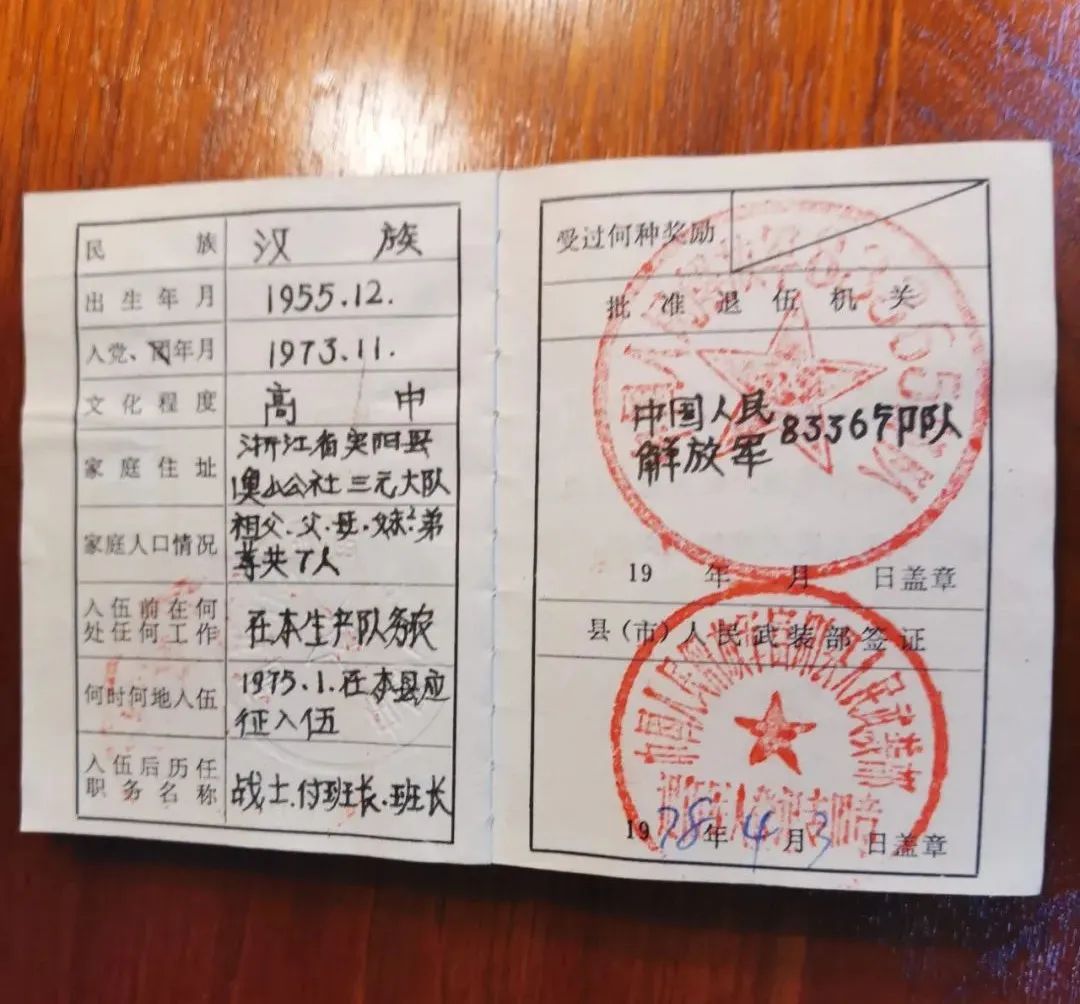 民族 汉族
出生年月 1955.12.
入党、团年月 1973.11.
文化程度 高中
家庭住址 浙江省富阳县
渔山公社三元大队
家庭人口情况 祖父.父.母.妹²弟
等共7人
入伍前在何
处任何工作 在本生产队务农
何时何地入伍 1975.1.在本县应
征入伍
入伍后历任
职务名称 战士.付班长.班长
受过何种奖励
批准退伍机关
中国人民
解放军83365部队
19 年 月 日盖章
县(市)人民武装部签证
1978年4月3日盖章